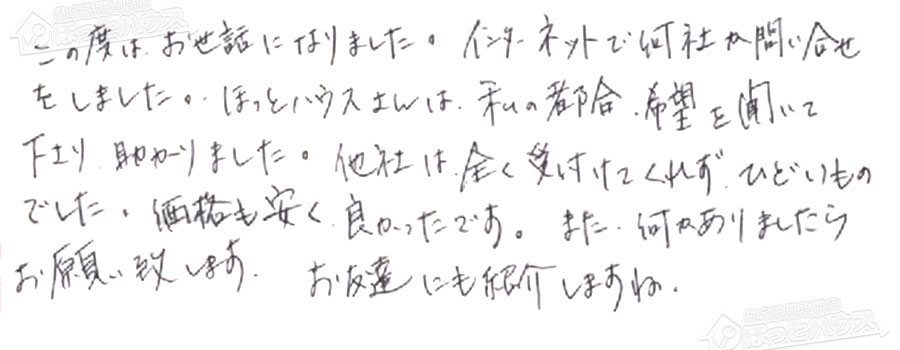 この度は、お世話になりました。インターネットで何社か問い合せ
をしました。ほっとハウスさんは、私の都合、希望を聞いて
下さり、助かりました。他社は、全く受付けてくれず、ひどいもの
でした。価格も安く、良かったです。また、何かありましたら
お願い致します。 お友達にも紹介しますね。
住宅設備専門店
ほっとハウス